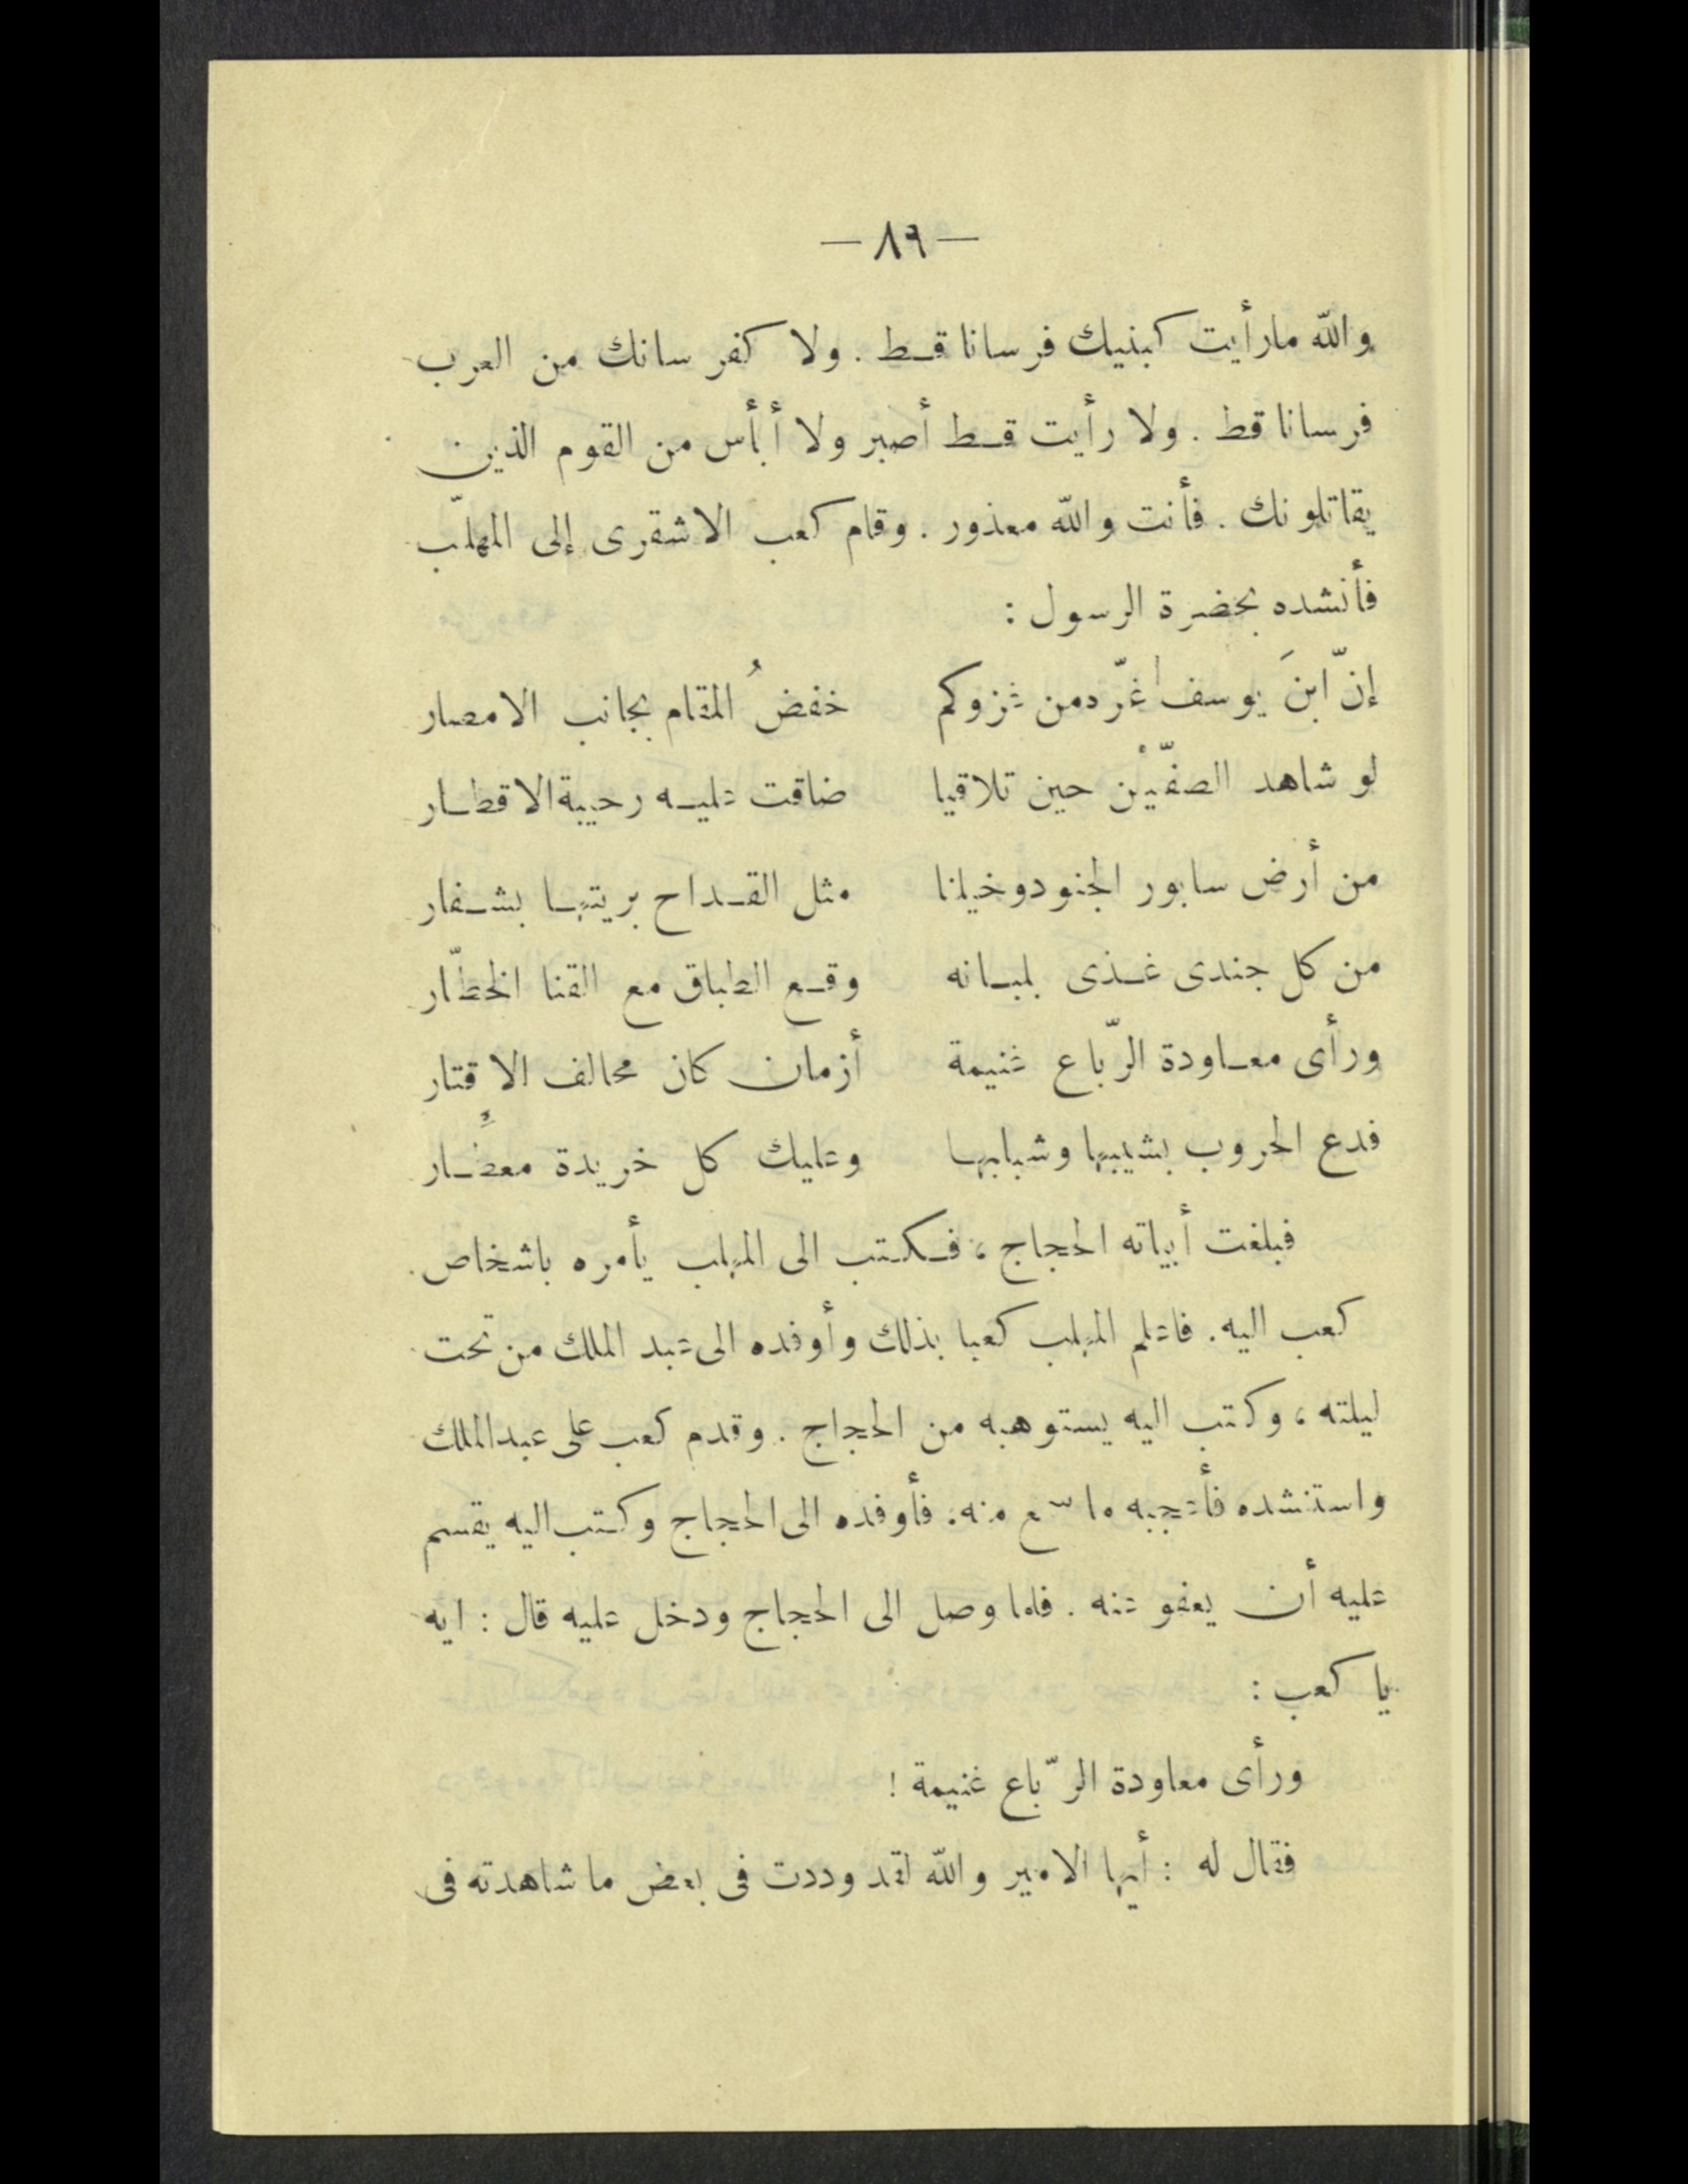 — ٨٩ —
والله ما رأيت كبنيك فرسانا قط . ولا كفرسانك من العرب
فرسانا قط . ولا رأيت قط أصبر ولا أبأس من القوم الذين
يقاتلونك . فأنت والله معذور . وقام كعب الاشقرى إلى المهلّب
فأنشده بحضرة الرسول :
إنّ ابنَ يوسف غرّه من غزوكم خفضُ المقام بجانب الامصار
لو شاهد الصفّيْن حين تلاقيا ضاقت عليه رحيبة الاقطار
من أرض سابور الجنود وخيلنا مثل القداح بريتها بشفار
من كل جندى غذى بلبانه وقع الطباق مع القنا الخطّار
ورأى معاودة الرّباع غنيمة أزمان كان محالف الاقتار
فدع الحروب بشيبها وشبابها وعليك كل خريدة معطار
فبلغت أبياته الحجاج ، فكتب الى المهلب يأمره باشخاص
كعب اليه . فاعلم المهلب كعبا بذلك وأوفده الى عبد الملك من تحت
ليلته ، وكتب اليه يستوهبه من الحجاج . وقدم كعب على عبد الملك
واستنشده فأعجبه ما سمع منه . فأوفده الى الحجاج وكتب اليه يقسم
عليه أن يعفو عنه . فلما وصل الى الحجاج ودخل عليه قال : ايه
يا كعب :
ورأى معاودة الرّباع غنيمة !
فقال له : أيها الامير والله لقد وددت فى بعض ما شاهدته فى